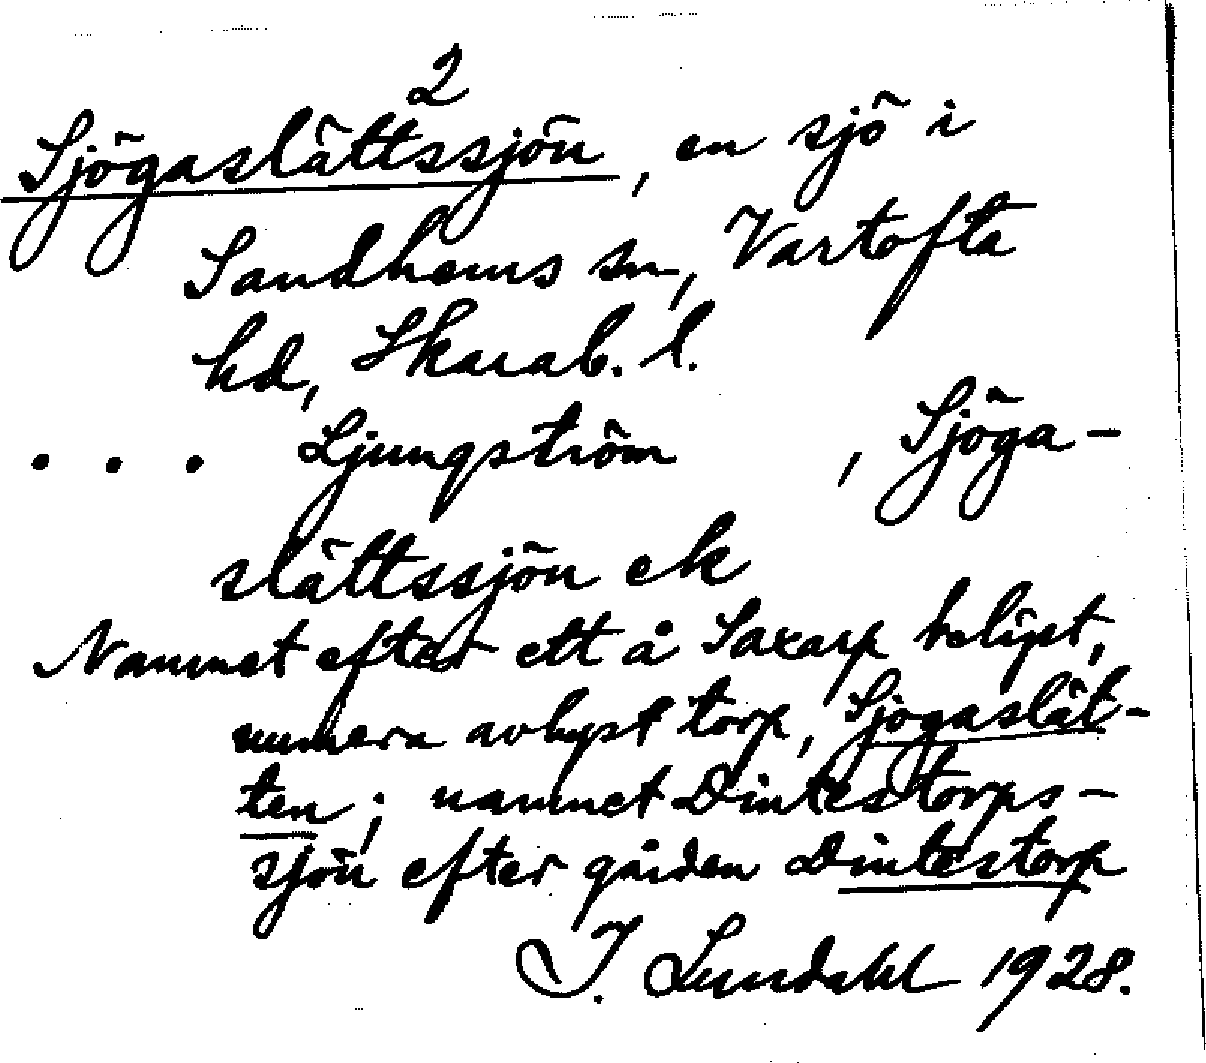 2
Sjögaslättssjön, en sjö i
Sandhems sn, Vartofta
hd, Skarab. l.
. . . Ljungström , Sjöga-
slättssjön ek
Namnet efter ett å Saxarp beläget,
numera avhyst torp, Sjögaslät-
ten; namnet Dintestorps-
sjön efter gården Dintestorp
I. Lundahl 1928.